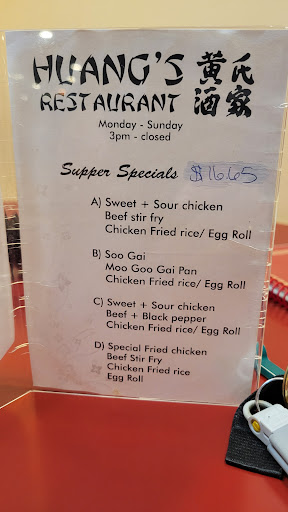 HUANG'S 黄氏
RESTAURANT 酒家
Monday - Sunday
3pm - closed
Supper Specials $16.65
A) Sweet + Sour chicken
Beef stir fry
Chicken Fried rice/ Egg Roll
B) Soo Gai
Moo Goo Gai Pan
Chicken Fried rice/ Egg Roll
C) Sweet + Sour chicken
Beef + Black pepper
Chicken Fried rice/ Egg Roll
D) Special Fried chicken
Beef Stir Fry
Chicken Fried rice
Egg Roll